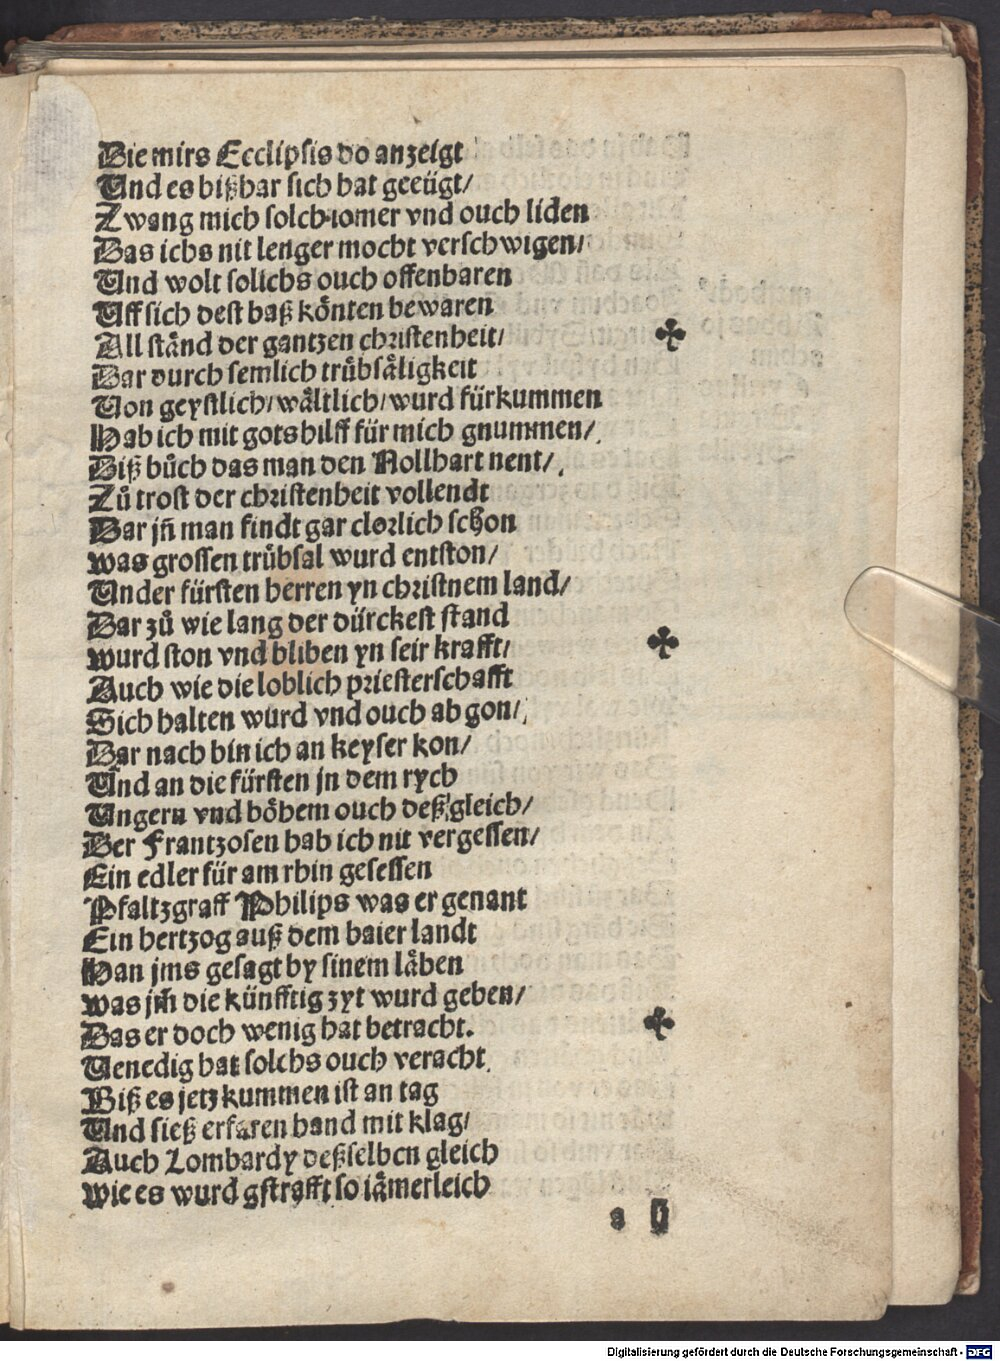 Die mirs Ecclipsis do anzeigt
Und es bißhar sich hat geeügt/
Zwang mich solch iomer vnd ouch liden
Das ichs nit lenger mocht verschwigen/
Und wolt solichs ouch offenbaren
Uff sich dest baß könten bewaren
All ständ der gantzen christenheit/
Dar durch semlich trübsäligkeit
Von geystlich/wältlich/wurd fürkummen
Hab ich mit gots hilff für mich gnummen/
Diß büch das man den Nollhart nent/
Zů trost der christenheit vollendt
Dar jn̄ man findt gar clorlich schon
was grossen trübsal wurd entston/
Under fürsten herren yn christnem land/
Dar zů wie lang der dürckest stand
wurd ston vnd bliben yn seir krafft/
Auch wie die loblich priesterschafft
Sich halten wurd vnd ouch ab gon/
Dar nach bin ich an keyser kon/
Und an die fürsten jn dem rych
Ungern vnd böhem ouch deßgleich/
Der Frantzosen hab ich nit vergessen/
Ein edler für am rhin gesessen
Pfaltzgraff Philips was er genant
Ein hertzog auß dem baier landt
Han jms gesagt by sinem läben
was jm die künfftig zyt wurd geben/
Das er doch wenig hat betracht.
Venedig hat solchs ouch veracht
Biß es jetz kummen ist an tag
Und sieß erfaren hand mit klag/
Auch Lombardy deßselben gleich
Wie es wurd gstrafft so iämerleich
a ij
Digitalisierung gefördert durch die Deutsche Forschungsgemeinschaft - DFG